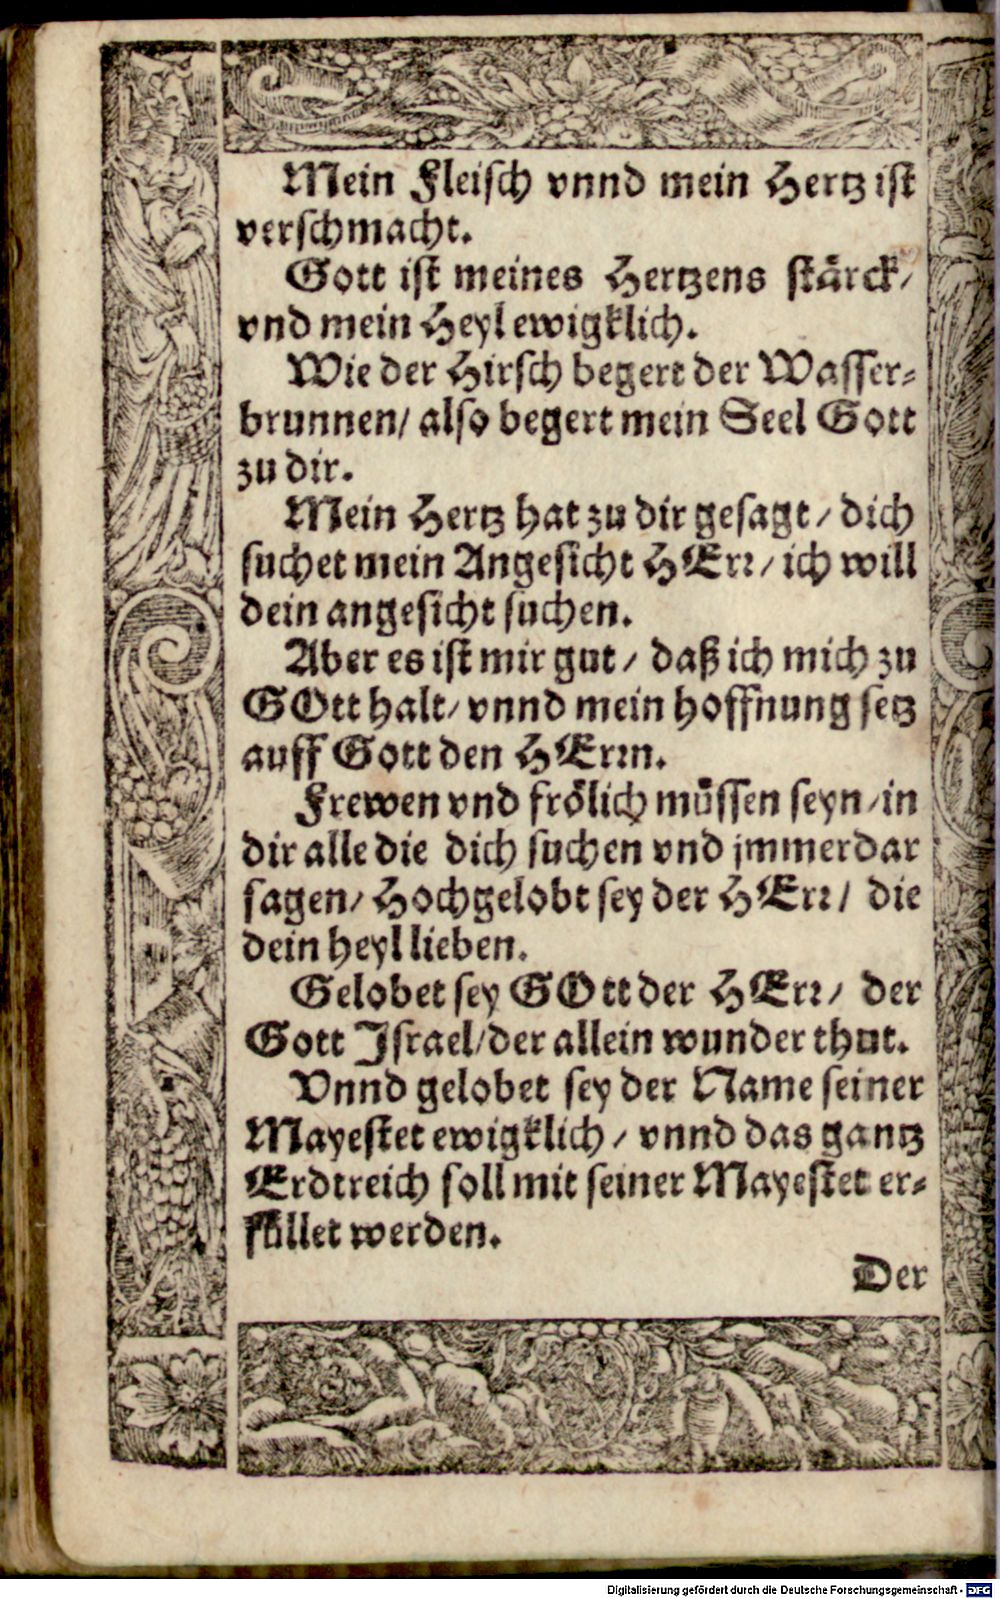 Mein Fleisch vnnd mein Hertz ist
verschmacht.
Gott ist meines Hertzens stärck/
vnd mein Heyl ewigklich.
Wie der Hirsch begert der Wasser-
brunnen/ also begert mein Seel Gott
zu dir.
Mein Hertz hat zu dir gesagt/ dich
suchet mein Angesicht HErr/ ich will
dein angesicht suchen.
Aber es ist mir gut/ daß ich mich zu
GOtt halt/ vnnd mein hoffnung setz
auff Gott den HErrn.
Frewen vnd frölich müssen seyn/ in
dir alle die dich suchen vnd jmmerdar
sagen/ Hochgelobt sey der HErr/ die
dein heyl lieben.
Gelobet sey GOtt der HErr/ der
Gott Israel/ der allein wunder thut.
Vnnd gelobet sey der Name seiner
Mayestet ewigklich/ vnnd das gantz
Erdtreich soll mit seiner Mayestet er-
füllet werden.
Der
Digitalisierung gefördert durch die Deutsche Forschungsgemeinschaft - DFG